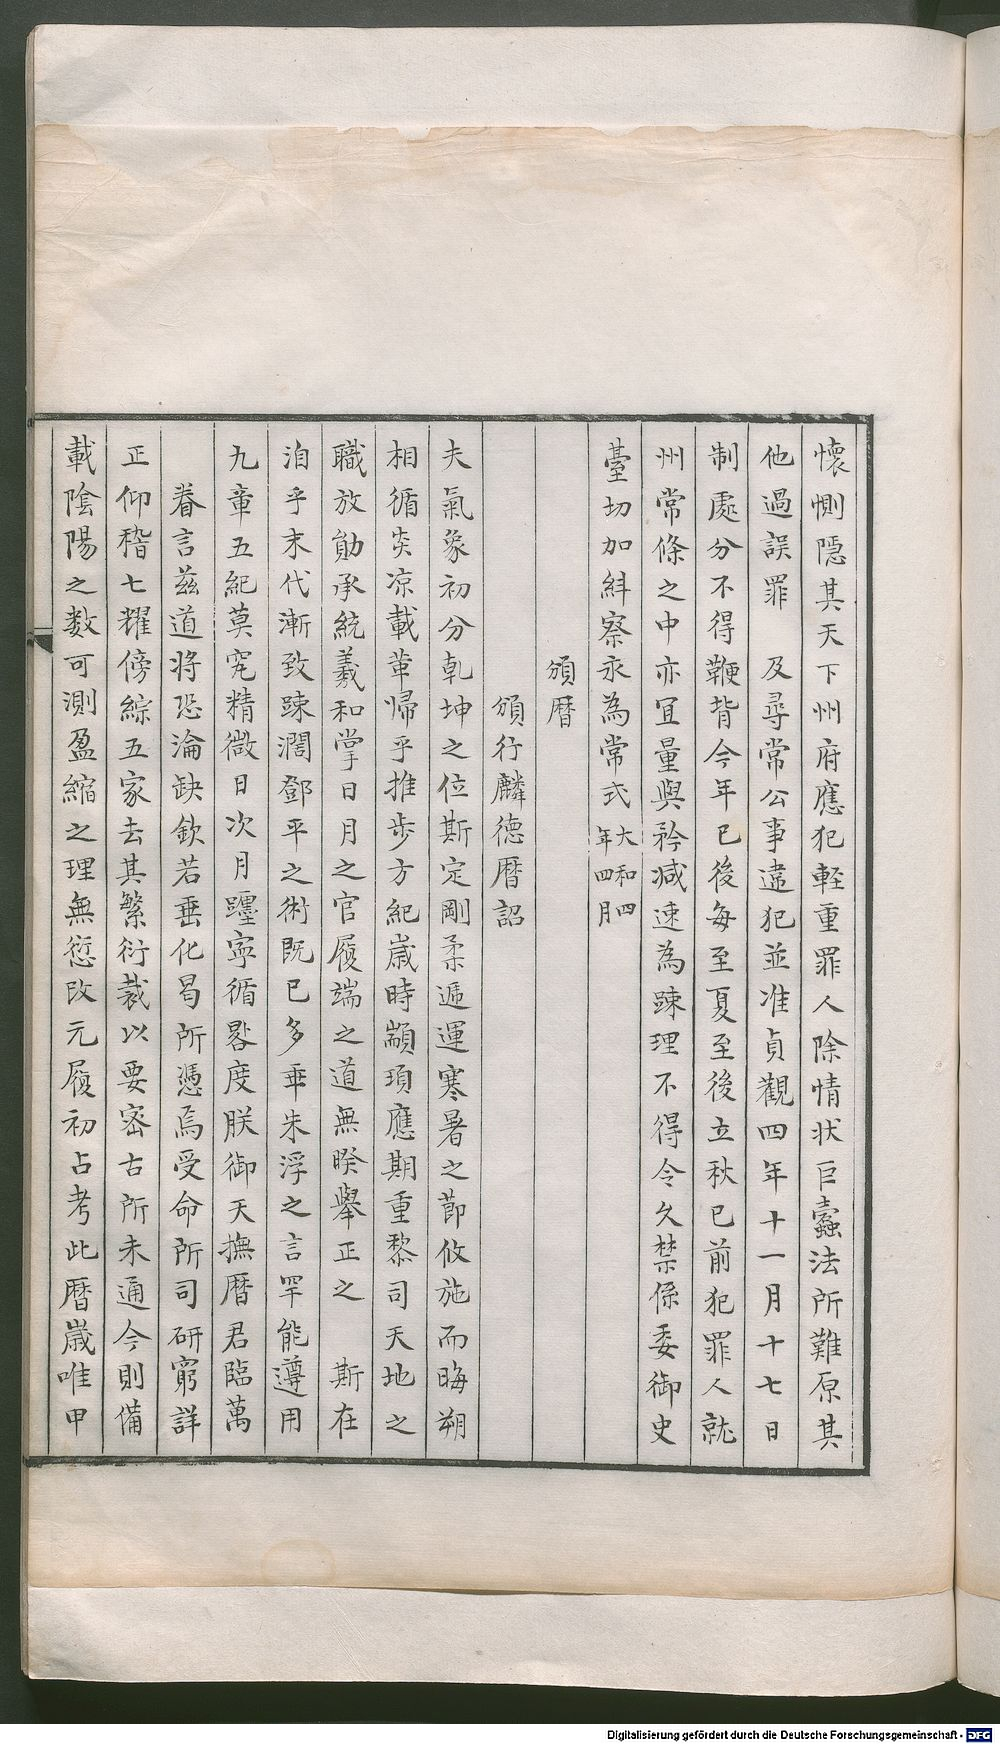 懷惻隱其天下州府應犯輕重罪人除情状巨蠹法所難原其
他過誤罪 及尋常公事違犯並准貞觀四年十一月十七日
制處分不得鞭背今年已後每至夏至後立秋已前犯罪人就
州常條之中亦冝量與矜减速為踈理不得令久禁係委御史
臺切加紏察永為常式大和四年四月
頒暦
頒行麟德暦詔
夫氣象初分乹坤之位斯定剛柔遞運寒暑之莭攸施而晦朔
相循炎凉載革歸乎推步方紀嵗時顓頊應期重黎司天地之
職放勛承統羲和掌日月之官履端之道無暌舉正之 斯在
洎乎末代漸致踈濶鄧平之術既已多乖朱浮之言罕能遵用
九章五紀莫究精微日次月躔寧循晷度朕御天撫暦君臨萬
眷言兹道將恐淪缺欽若垂化曷所憑焉受命所司研窮詳
正仰稽七耀傍綜五家去其繁衍裁以要宻古所未通今則備
載陰陽之数可測盈縮之理無愆攺元履初占考此暦嵗唯甲
Digitalisierung gefördert durch die Deutsche Forschungsgemeinschaft - DFG